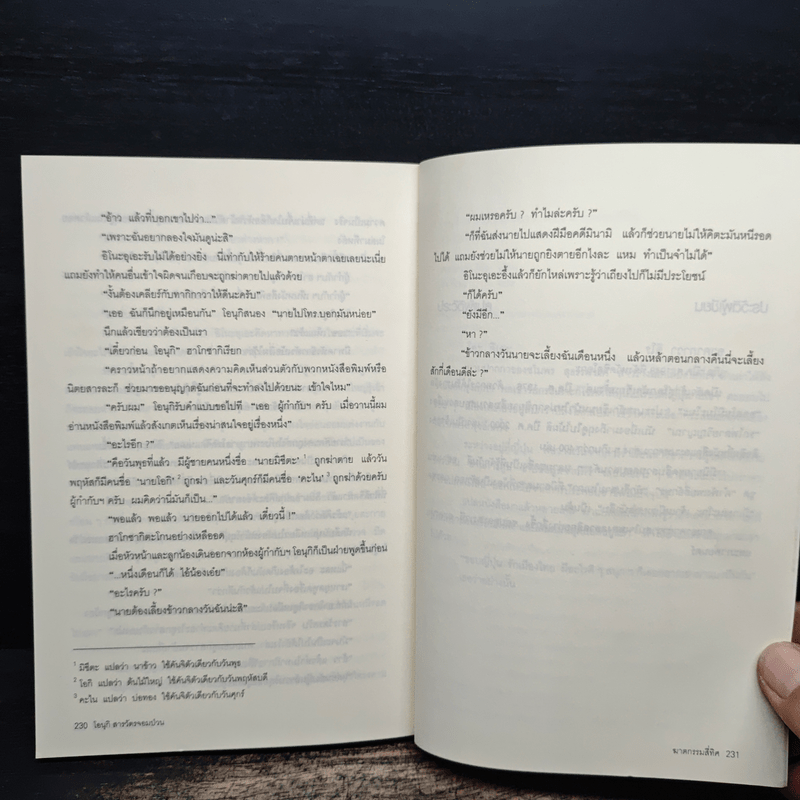 "อ้าว แล้วที่บอกเขาไปว่า..."
"เพราะฉันอยากลองใจมันดูน่ะสิ"
อิโนะอุเอะรับไม่ได้อย่างยิ่ง นี่เท่ากับให้ร้ายคนตายหน้าตาเฉยเลยน่ะเนี่ย
แถมยังทำให้คนอื่นเข้าใจผิดจนเกือบจะถูกฆ่าตายไปแล้วด้วย
"งั้นต้องเคลียร์กับทากิกาวาให้ดีนะครับ"
"เออ ฉันก็นึกอยู่เหมือนกัน" โอนุกิสนอง "นายไปโทร.บอกมันหน่อย"
นึกแล้วเชียวว่าต้องเป็นเรา
"เดี๋ยวก่อน โอนุกิ" ฮาโกซากิเรียก
"คราวหน้าถ้าอยากแสดงความคิดเห็นส่วนตัวกับพวกหนังสือพิมพ์หรือ
นิตยสารละก็ ช่วยมาขออนุญาตฉันก่อนที่จะทำลงไปด้วยนะ เข้าใจไหม"
"ครับผม" โอนุกิรับคำแบบขอไปที "เออ ผู้กำกับฯ ครับ เมื่อวานนี้ผม
อ่านหนังสือพิมพ์แล้วสังเกตเห็นเรื่องน่าสนใจอยู่เรื่องหนึ่ง"
"อะไรอีก ?"
"คือวันพุธที่แล้ว มีผู้ชายคนหนึ่งชื่อ 'นายมิซึตะ' ¹ ถูกฆ่าตาย แล้ววัน
พฤหัสก็มีคนชื่อ 'นายโอกิ' ² ถูกฆ่า และวันศุกร์ก็มีคนชื่อ 'คะไน' ³ ถูกฆ่าด้วยครับ
ผู้กำกับฯ ครับ ผมคิดว่านี่มันก็เป็น..."
"พอแล้ว พอแล้ว นายออกไปได้แล้ว เดี๋ยวนี้ !"
ฮาโกซากิตะโกนอย่างเหลืออด
เมื่อหัวหน้าและลูกน้องเดินออกจากห้องผู้กำกับฯ โอนุกิก็เป็นฝ่ายพูดขึ้นก่อน
"...หนึ่งเดือนก็ได้ ไอ้น้องเอ๋ย"
"อะไรครับ ?"
"นายต้องเลี้ยงข้าวกลางวันฉันน่ะสิ"
¹ มิซึตะ แปลว่า นาข้าว ใช้คันจิตัวเดียวกับวันพุธ
² โอกิ แปลว่า ต้นไม้ใหญ่ ใช้คันจิตัวเดียวกับวันพฤหัสบดี
³ คะไน แปลว่า บ่อทอง ใช้คันจิตัวเดียวกับวันศุกร์
230 โอนุกิ สารวัตรจอมป่วน
"ผมเหรอครับ ? ทำไมล่ะครับ ?"
"ก็ที่ฉันส่งนายไปแสดงฝีมือคดีมินามิ แล้วก็ช่วยนายไม่ให้คิตะมันหนีรอด
ไปได้ แถมยังช่วยไม่ให้นายถูกยิงตายอีกไงละ แหม ทำเป็นจำไม่ได้"
อิโนะอุเอะอึ้งแล้วก็ยักไหล่เพราะรู้ว่าเถียงไปก็ไม่มีประโยชน์
"ก็ได้ครับ"
"ยังมีอีก..."
"หา ?"
"ข้าวกลางวันนายจะเลี้ยงฉันเดือนหนึ่ง แล้วเหล้าตอนกลางคืนนี่จะเลี้ยง
สักกี่เดือนดีล่ะ ?"
ฆาตกรรมสี่ทิศ 231